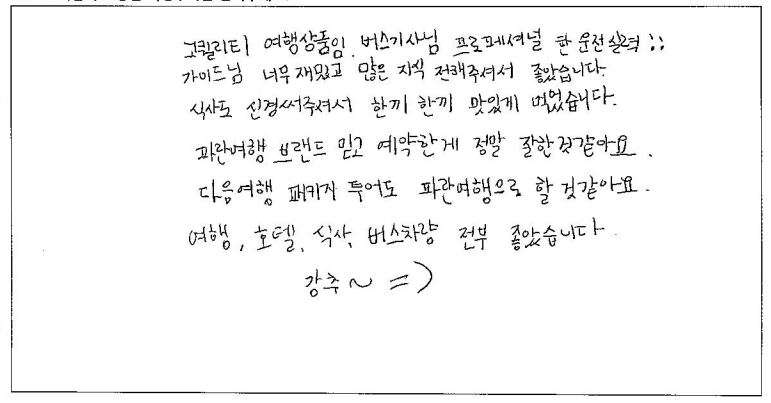 고퀄리티 여행상품임. 버스기사님 프로페셔널 한 운전실력 !!
가이드님 너무 재밌고 많은 지식 전해주셔서 좋았습니다.
식사도 신경써주셔서 한끼 한끼 맛있게 먹었습니다.
파란여행 브랜드 믿고 예약한게 정말 잘한것같아요.
다음여행 패키지 투어도 파란여행으로 할 것같아요.
여행, 호텔, 식사, 버스차량 전부 좋았습니다.
강추~ =)